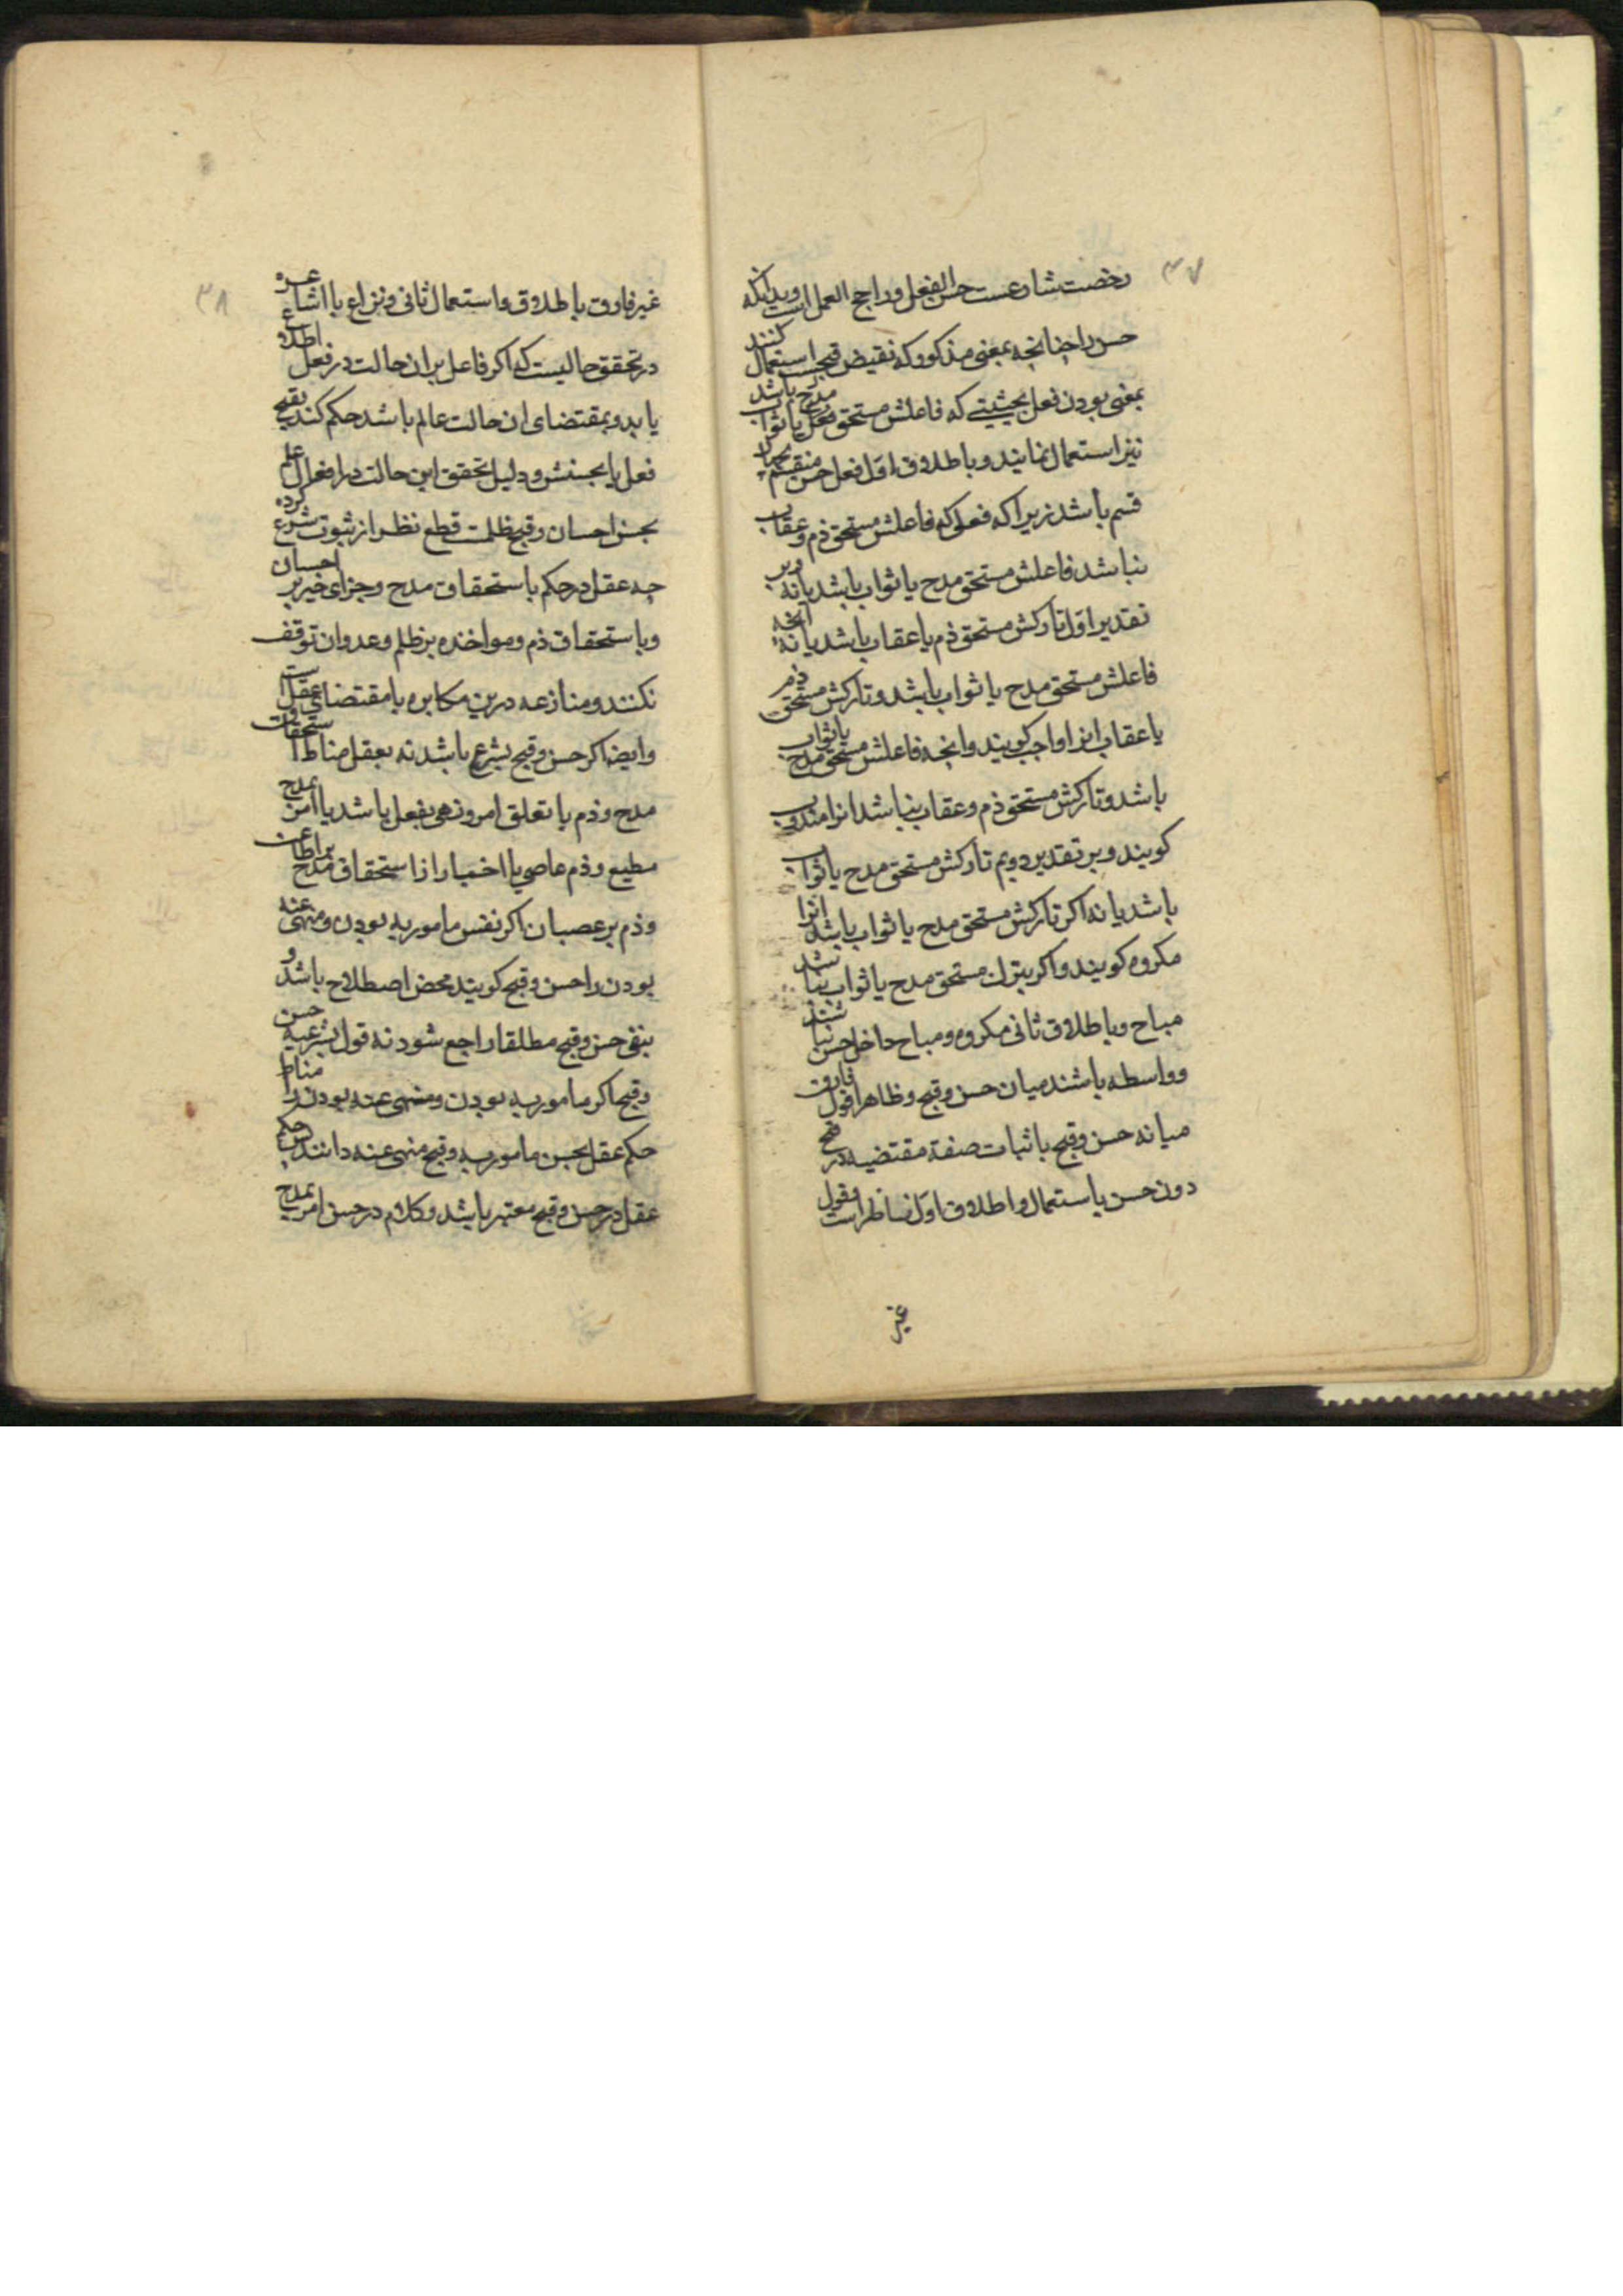 ۳۷
رخصت شارعست حسن الفعل و راجح العمل است و بدانکه
حسن را چنانچه بمعنی مذکور که نقیض قبحست استعمال کنند
بمعنی بودن فعل بحیثیتی که فاعلش مستحق مدح یا ثواب باشد
نیز استعمال نمایند و باطلاق اول فعل حسن منقسم بچهار
قسم باشد زیرا که فعلی که فاعلش مستحق ذم و عقاب
نباشد فاعلش مستحق مدح یا ثواب باشد یا نه و بر
تقدیر اول تارکش مستحق ذم یا عقاب باشد یا نه آنچه
فاعلش مستحق مدح یا ثواب باشد و تارکش مستحق ذم
یا عقاب انرا واجب کویند و انچه فاعلش مستحق مدح یا ثواب
باشد و تارکش مستحق ذم و عقاب نباشد انرا مندوب
کویند و بر تقدیر دویم تارکش مستحق مدح یا ثواب
باشد یا نه اکر تارکش مستحق مدح یا ثواب باشد انرا
مکروه کویند و اکر بترک مستحق مدح یا ثواب نباشد
مباح و باطلاق ثانی مکروه و مباح داخل حسن نباشند
و واسطه باشند میان حسن و قبح و ظاهرا قول فارق
میانه حسن و قبح باثبات صفة مقتضیه در قبح
دون حسن باستعمال و اطلاق اول ناظر است و قول
غیر
۳۸
غیر فارق باطلاق و استعمال ثانی و نزاع با اشاعره
در تحقق حالیست که اکر فاعل بران حالت در فعل اطلاع
یابد و بمقتضای ان حالت عالم باشد حکم کند بقبح
فعل یا بحسنش و دلیل تحقق این حالت در افعال علم
بحسن احسان و قبح ظلمت قطع نظر از ثبوت شرع کرده
چه عقل در حکم باستحقاق مدح و جزای خیر بر احسان
و باستحقاق ذم و مواخذه بر ظلم و عدوان توقف
نکنند و منازعه درین مکابره با مقتضای عقل است
و ایضا اکر حسن و قبح بشرع باشد نه بعقل مناط استحقاق
مدح و ذم یا تعلق امر و نهی بفعل باشد یا امر بمدح
مطیع و ذم عاصی یا اخبار از استحقاق مدح بر اطاعت
و ذم بر عصیان اکر نفس مامور به بودن و منهی عنه
بودن را حسن و قبح کویند محض اصطلاح باشد و
بنفی حسن و قبح مطلقا راجع شود نه قول بشرعیه حسن
و قبح اکر مامور به بودن و منهی عنه بودن را مناط
حکم عقل بحسن مامور به و قبح منهی عنه دانند حکم
عقل در حسن و قبح معتبر باشد و کلام در حسن امر بمدح